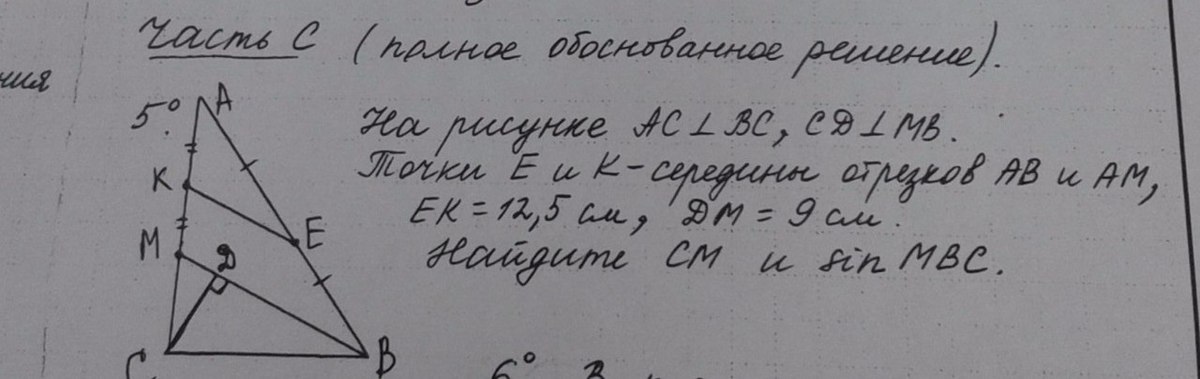 Часть С (полное обоснованное решение).
ния
5°.
На рисунке AC ⊥ BC, CD ⊥ MB.
Точки E и K - середины отрезков AB и AM,
EK = 12,5 см, DM = 9 см.
Найдите CM и sin MBC.
A
K
E
M
D
C
B
6°